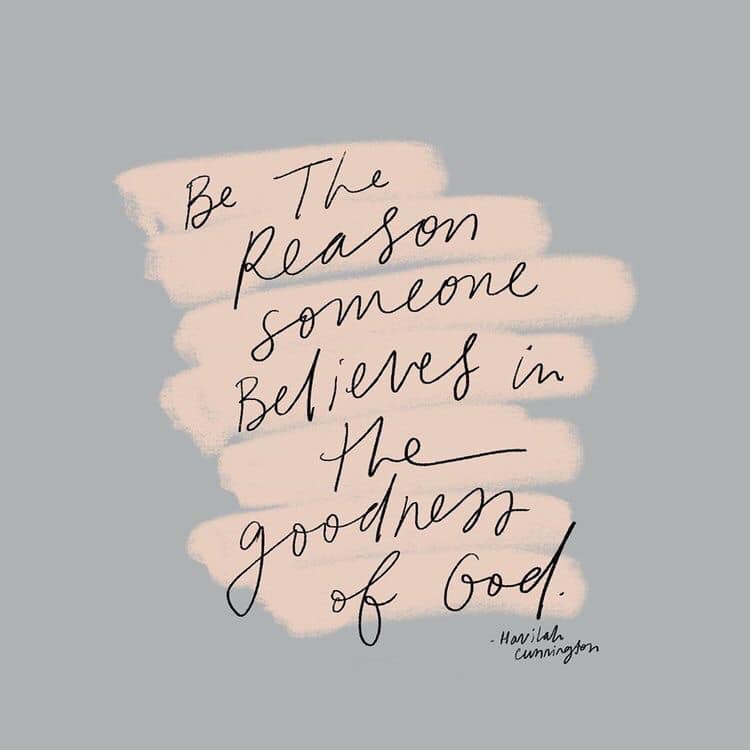 Be The
Reason
someone
Believes in
the
goodness
of God.
- Havilah
Cunnington